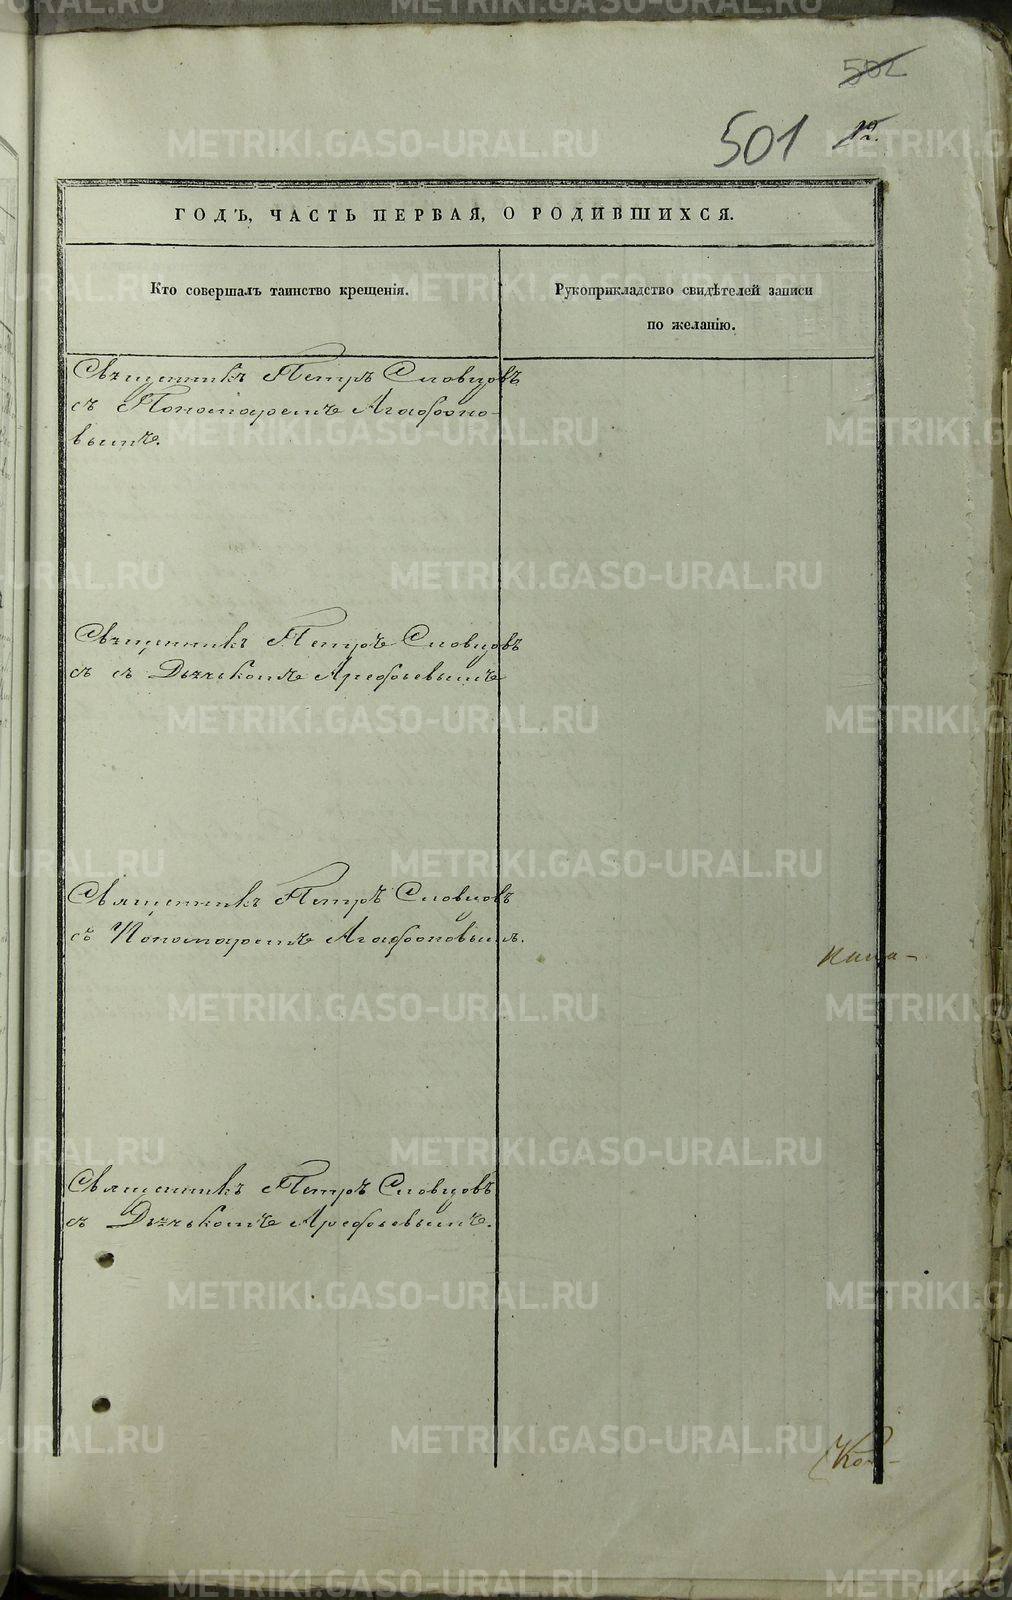 502
501 12.
ГОДЪ, ЧАСТЬ ПЕРВАЯ, О РОДИВШИХСЯ.
Кто совершалъ таинство крещенія.
Рукоприкладство свидѣтелей записи
по желанію.
Священникъ Петръ Словцовъ
съ Пономаремъ Агафоно-
вымъ.
Священникъ Петръ Словцовъ
съ съ Дьячькомъ Арефьевымъ
Священникъ Петръ Словцовъ
съ Пономаремъ Агафоновымъ.
Священникъ Петръ Словцовъ
съ Дьячькомъ Арефьевымъ.
METRIKI.GASO-URAL.RU